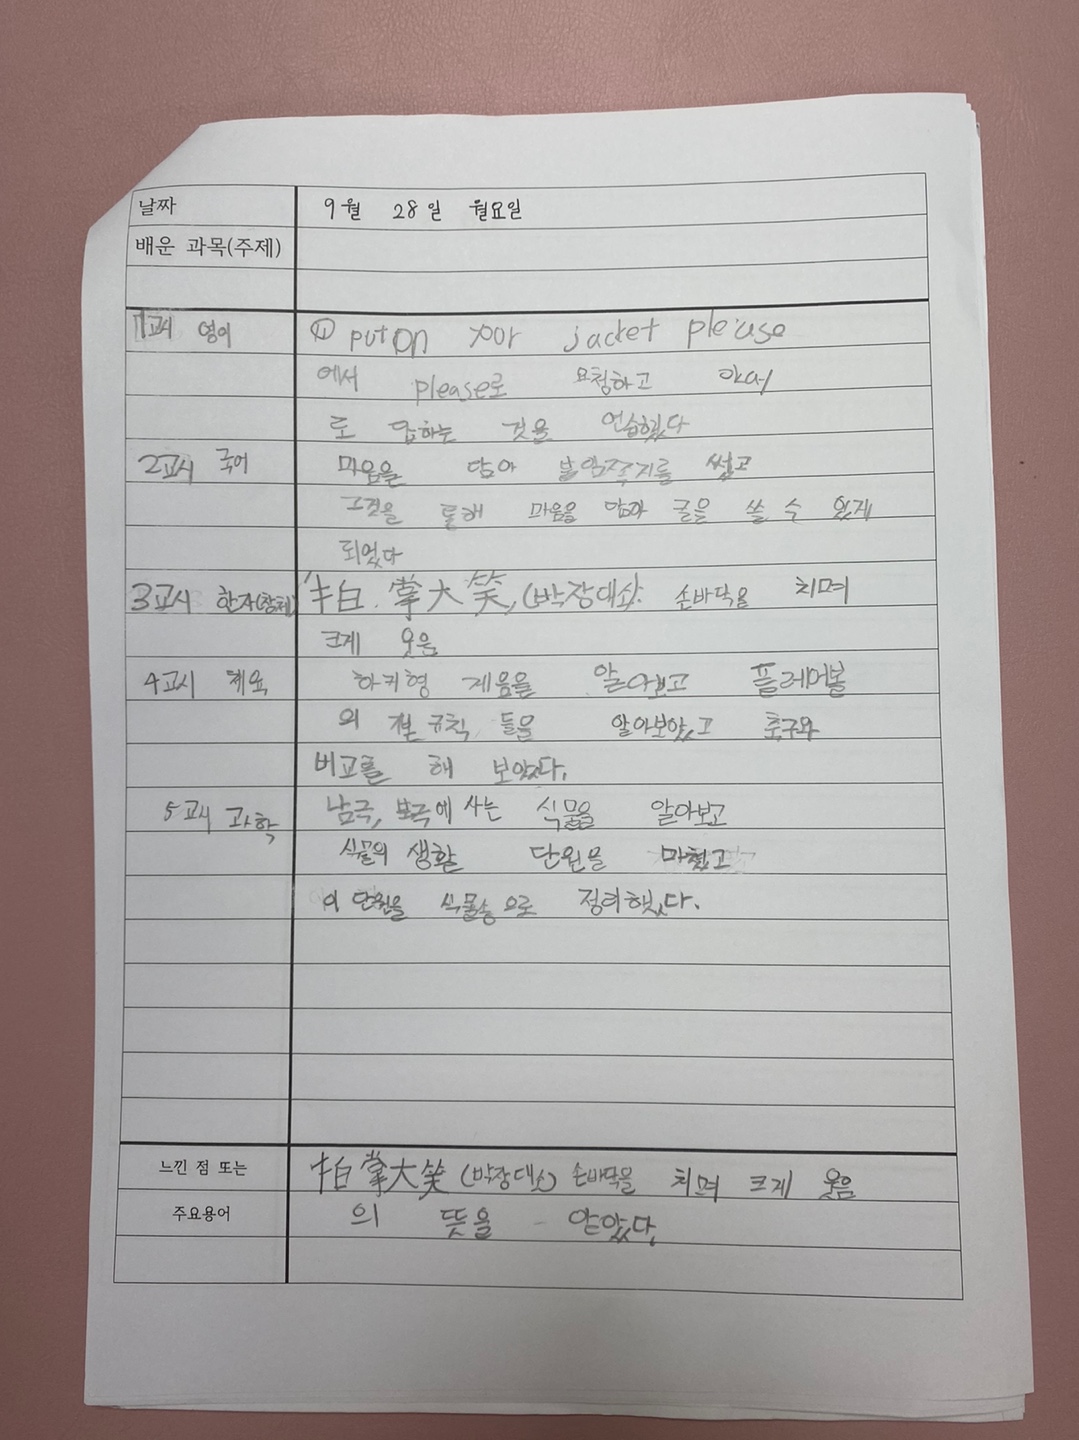 날짜 9월 28일 월요일
배운 과목(주제)
1교시 영어 ① put on your jacket please
에서 please로 요청하고 okay
로 답하는 것을 연습했다
2교시 국어 마음을 담아 붙임쪽지를 썼고
그것을 통해 마음을 담아 글을 쓸 수 있게
되었다
3교시 한자(창체) 拍掌大笑,(박장대소): 손바닥을 치며
크게 웃음
4교시 체육 하키형 게임을 알아보고 플레어볼
의 기본 규칙 들을 알아보았고 축구와
비교를 해 보았다.
5교시 과학 남극, 북극에 사는 식물을 알아보고
식물의 생활 단원을 마쳤고
이 단원을 식물송으로 정리했다.
느낀 점 또는 拍掌大笑(박장대소) 손바닥을 치며 크게 웃음
주요용어 의 뜻을 알았다.